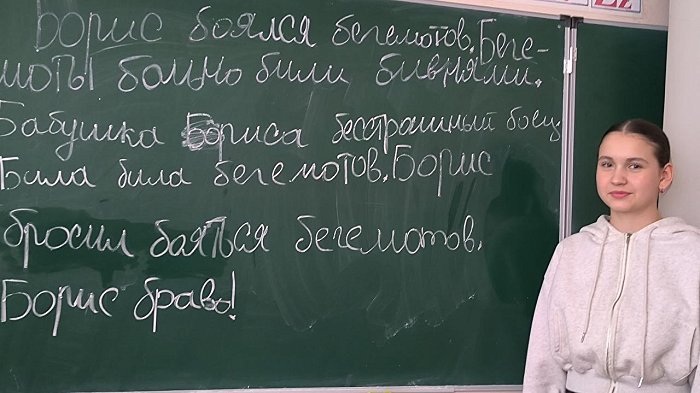 Борис боялся бегемотов. Беге-
моты больно били бивнями.
Бабушка Бориса бесстрашный боец.
Била била бегемотов. Борис
бросил бояться бегемотов.
Борис браво!